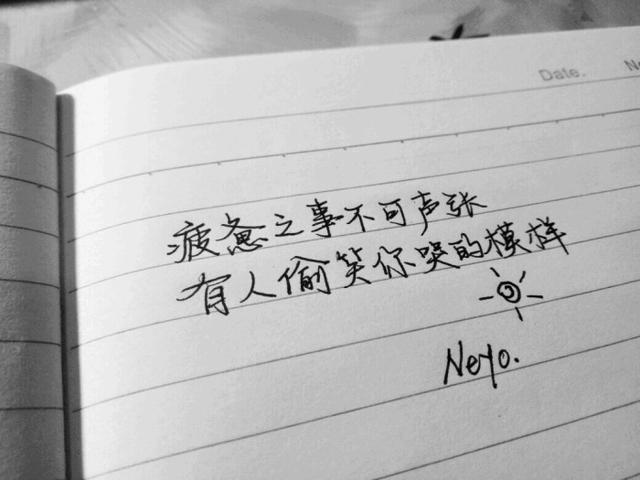 Date.
疲惫之事不可声张
有人偷笑你哭的模样
Neyo.